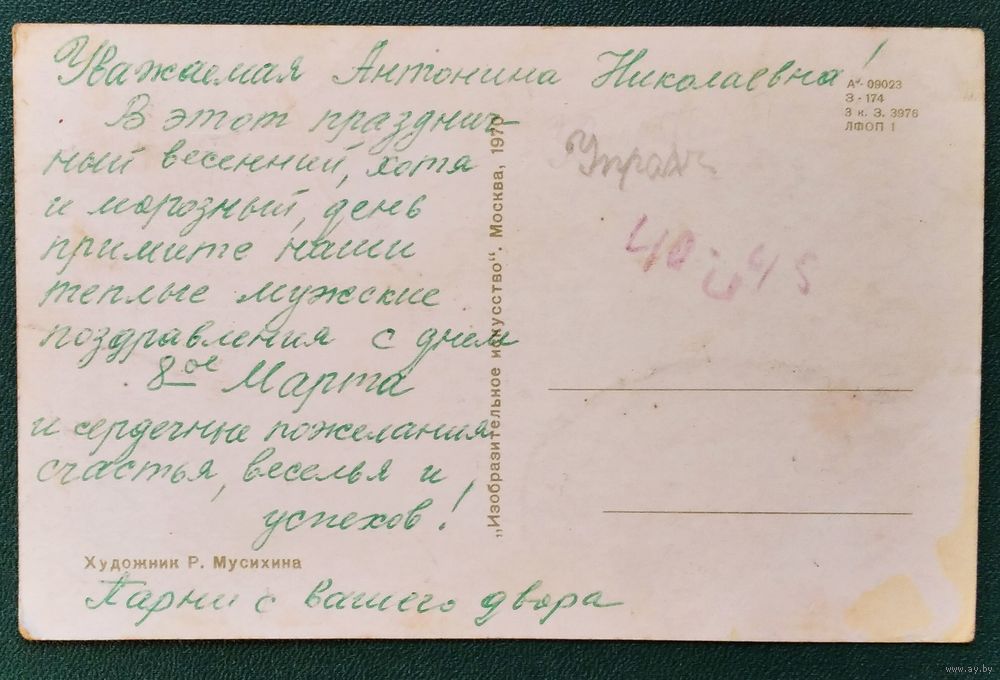 Уважаемая Антонина Николаевна!
В этот празднич-
ный весенний, хотя
и морозный, день
примите наши
теплые мужские
поздравления с днем
8ое Марта
и сердечные пожелания
счастья, веселья и
успехов!
Художник Р. Мусихина
Парни с вашего двора
„Изобразительное искусство“. Москва, 1970
А- 09023
З - 174
3 к. З. 3976
ЛФОП 1
40 45
www.ay.by